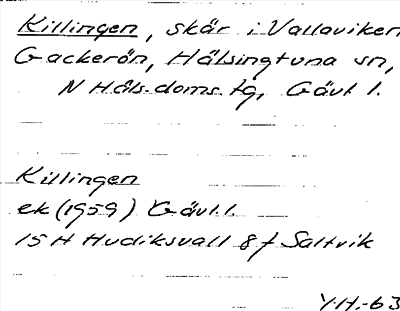 Killingen, skär i Vallaviken
Gackerön, Hälsingtuna sn,
N Häls. doms. tg, Gävl l.
Killingen
ek (1959) Gävl. l.
15 H Hudiksvall 8 f Saltvik
Y.H.-63